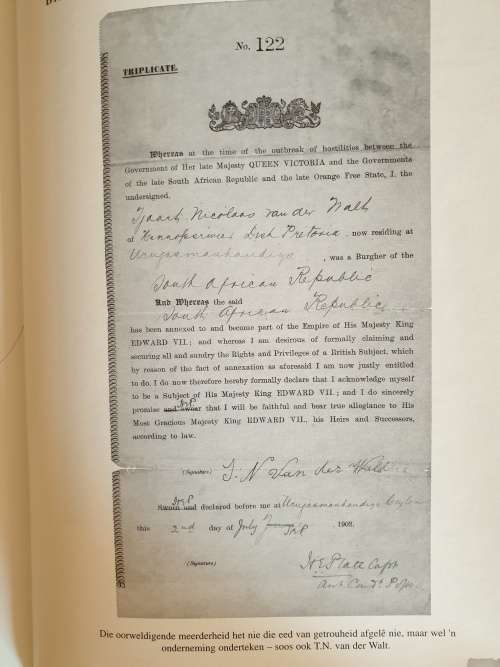 No. 122
TRIPLICATE.
Whereas at the time of the outbreak of hostilities between the
Government of Her late Majesty QUEEN VICTORIA and the Governments
of the late South African Republic and the late Orange Free State, I, the
undersigned.
Tjaart Nicolaas van der Walt
of Hennopsrivier Dist Pretoria now residing at
, was a Burgher of the
South African Republic
And Whereas the said
South African Republic
has been annexed to and become part of the Empire of His Majesty King
EDWARD VII.; and whereas I am desirous of formally claiming and
securing all and sundry the Rights and Privileges of a British Subject, which
by reason of the fact of annexation as aforesaid I am now justly entitled
to do. I do now therefore hereby formally declare that I acknowledge myself
to be a Subject of His Majesty King EDWARD VII.; and I do sincerely
promise and swear that I will be faithful and bear true allegiance to His
Most Gracious Majesty King EDWARD VII., his Heirs and Successors,
according to law.
(Signature) T. N van der Walt
Sworn and declared before me at Ceylon
this 2nd day of July 1902.
(Signature)
Die oorweldigende meerderheid het nie die eed van getrouheid afgelê nie, maar wel 'n
onderneming onderteken – soos ook T.N. van der Walt.